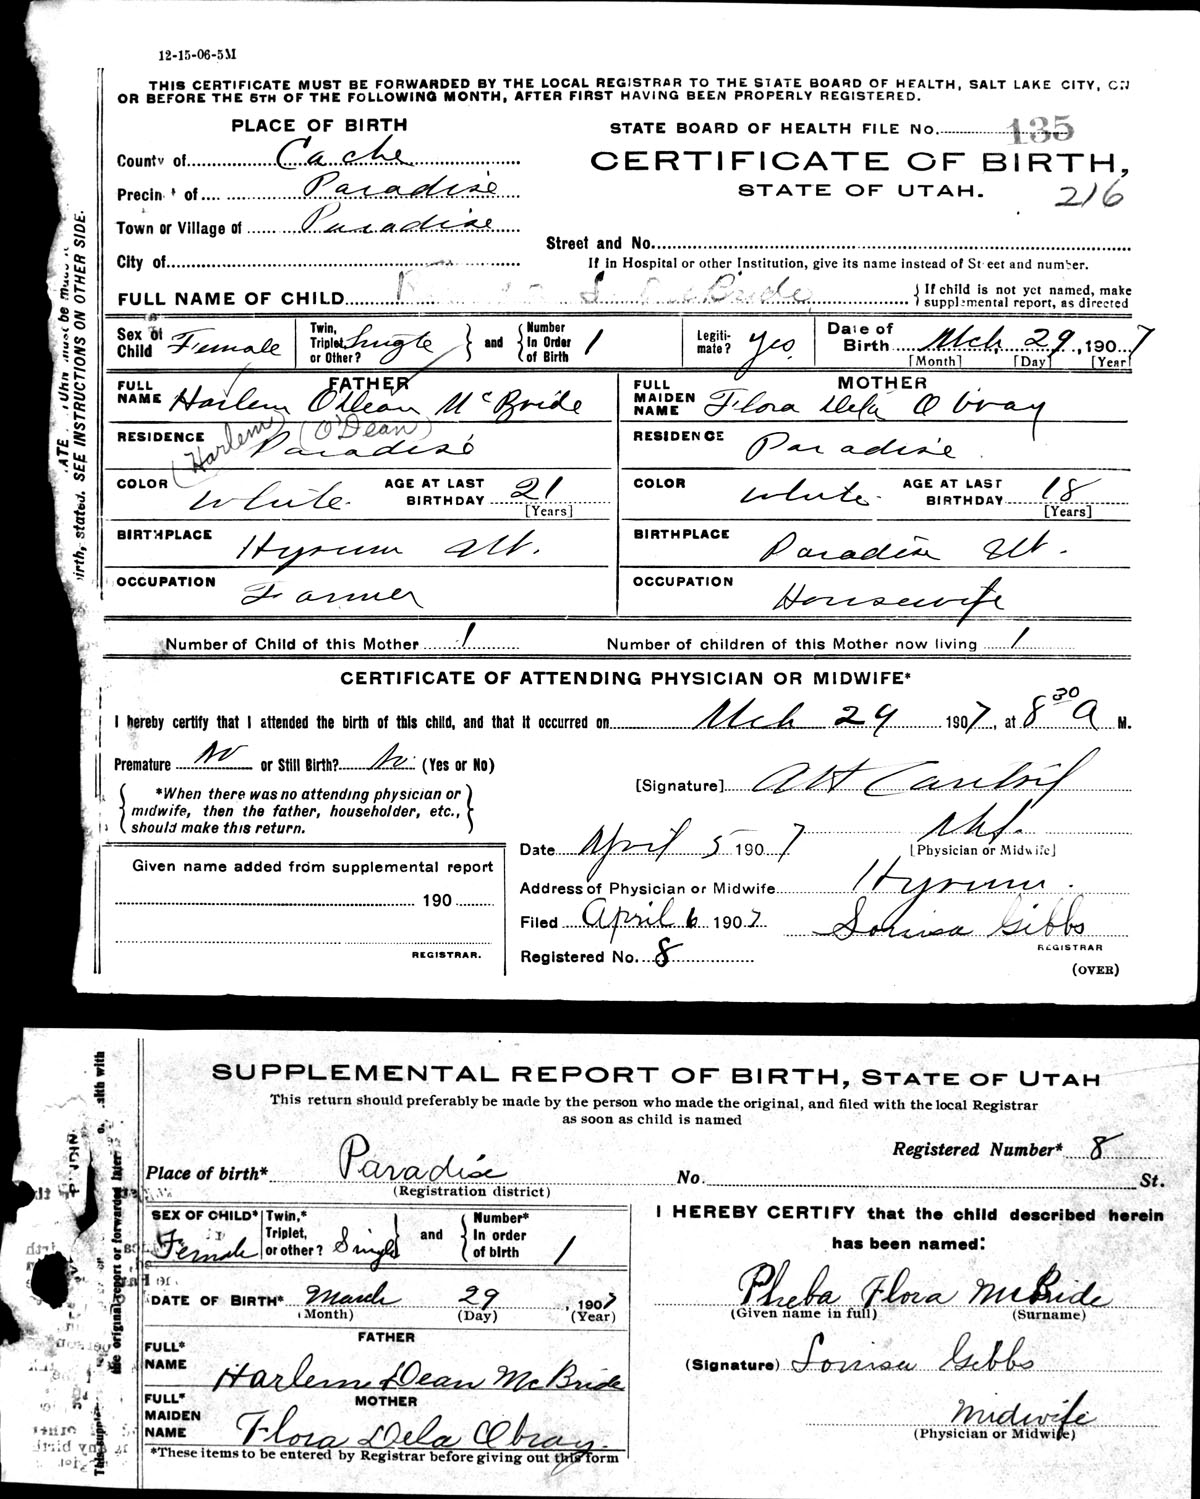 12-15-06-5M
THIS CERTIFICATE MUST BE FORWARDED BY THE LOCAL REGISTRAR TO THE STATE BOARD OF HEALTH, SALT LAKE CITY, ON
OR BEFORE THE 5TH OF THE FOLLOWING MONTH, AFTER FIRST HAVING BEEN PROPERLY REGISTERED.
PLACE OF BIRTH
STATE BOARD OF HEALTH FILE No. 135
County of Cache
CERTIFICATE OF BIRTH,
Precinct of Paradise
STATE OF UTAH.
216
Town or Village of Paradise
Street and No.
City of
If in Hospital or other Institution, give its name instead of Street and number.
FULL NAME OF CHILD McBride
If child is not yet named, make supplemental report, as directed
Sex of Child Female
Twin, Triplet, or Other? Single and Number In Order of Birth 1
Legitimate? Yes
Date of Birth Mch 29, 1907
[Month] [Day] [Year]
FATHER
FULL NAME Harlem O'Dean McBride
(Harlem) (O'Dean)
RESIDENCE Paradise
COLOR White AGE AT LAST BIRTHDAY 21
[Years]
BIRTHPLACE Hyrum Ut.
OCCUPATION Farmer
MOTHER
FULL MAIDEN NAME Flora Dela Obray
RESIDENCE Paradise
COLOR White AGE AT LAST BIRTHDAY 18
[Years]
BIRTHPLACE Paradise Ut.
OCCUPATION Housewife
Number of Child of this Mother 1 Number of children of this Mother now living 1
CERTIFICATE OF ATTENDING PHYSICIAN OR MIDWIFE*
I hereby certify that I attended the birth of this child, and that it occurred on Mch 29 1907, at 8 30 A M.
Premature No or Still Birth? No (Yes or No)
*When there was no attending physician or
midwife, then the father, householder, etc.,
should make this return.
[Signature]
Date April 5 1907
[Physician or Midwife]
Given name added from supplemental report
190
REGISTRAR.
Address of Physician or Midwife Hyrum.
Filed April 6 1907 Louisa Gibbs
REGISTRAR
Registered No. 8
(OVER)
birth, stated. SEE INSTRUCTIONS ON OTHER SIDE.
SUPPLEMENTAL REPORT OF BIRTH, STATE OF UTAH
This return should preferably be made by the person who made the original, and filed with the local Registrar
as soon as child is named
Registered Number* 8
Place of birth* Paradise No. St.
(Registration district)
SEX OF CHILD* Female
Twin,* Triplet, or other? Single and Number* In order of birth 1
DATE OF BIRTH* March 29, 1907
(Month) (Day) (Year)
FATHER
FULL* NAME Harlem Dean McBride
MOTHER
FULL* MAIDEN NAME Flora Dela Obray
*These items to be entered by Registrar before giving out this form
I HEREBY CERTIFY that the child described herein
has been named:
Pheba Flora McBride
(Given name in full) (Surname)
(Signature) Louisa Gibbs
Midwife
(Physician or Midwife)
the original report or forwarded later